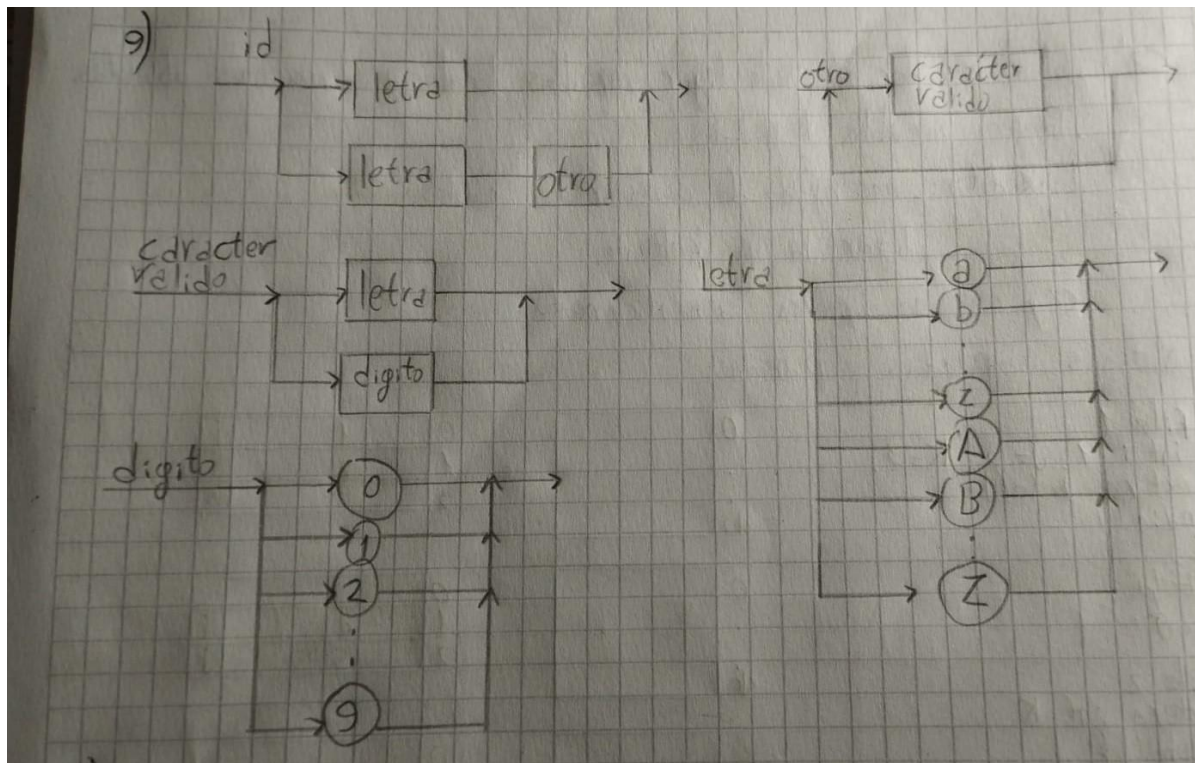 9)
id
letra
letra
otro
otro
caracter
valido
caracter
valido
letra
digito
letra
a
b
z
A
B
Z
digito
0
1
2
9